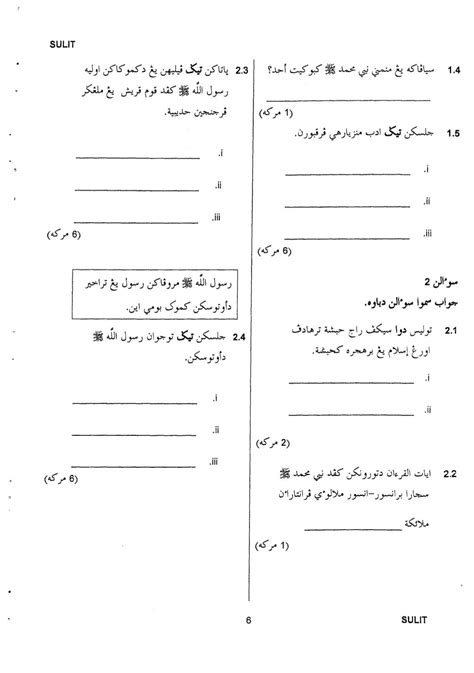 SULIT
1.4 سياڤاكه يڠ منمني نبي محمد ﷺ كبوكيت أحد؟
(1 مركه)
1.5 جلسكن تيݢ ادب منزيارهي ڤرقبورن.
.i
.ii
.iii
(6 مركه)
سوءالن 2
جواب سموا سوءالن دباوه.
2.1 توليس دوا سيكڤ راج حبشة ترهادڤ
اورڠ إسلام يڠ برهجره كحبشة.
.i
.ii
(2 مركه)
2.2 ايات القرءان دتورونكن كڤد نبي محمد ﷺ
سچارا برانسور-انسور ملالوءي ڤرانتاراءن
ملائكة
(1 مركه)
2.3 ڽاتاكن تيݢ ڤيليهن يڠ دكموكاكن اوليه
رسول اللّه ﷺ كڤد قوم قريش يڠ ملڠݢر
ڤرجنجين حديبية.
.i
.ii
.iii
(6 مركه)
رسول اللّه ﷺ مروڤاكن رسول يڠ تراخير
دأوتوسكن كموك بومي اين.
2.4 جلسكن تيݢ توجوان رسول اللّه ﷺ
دأوتوسكن.
.i
.ii
.iii
(6 مركه)
6
SULIT